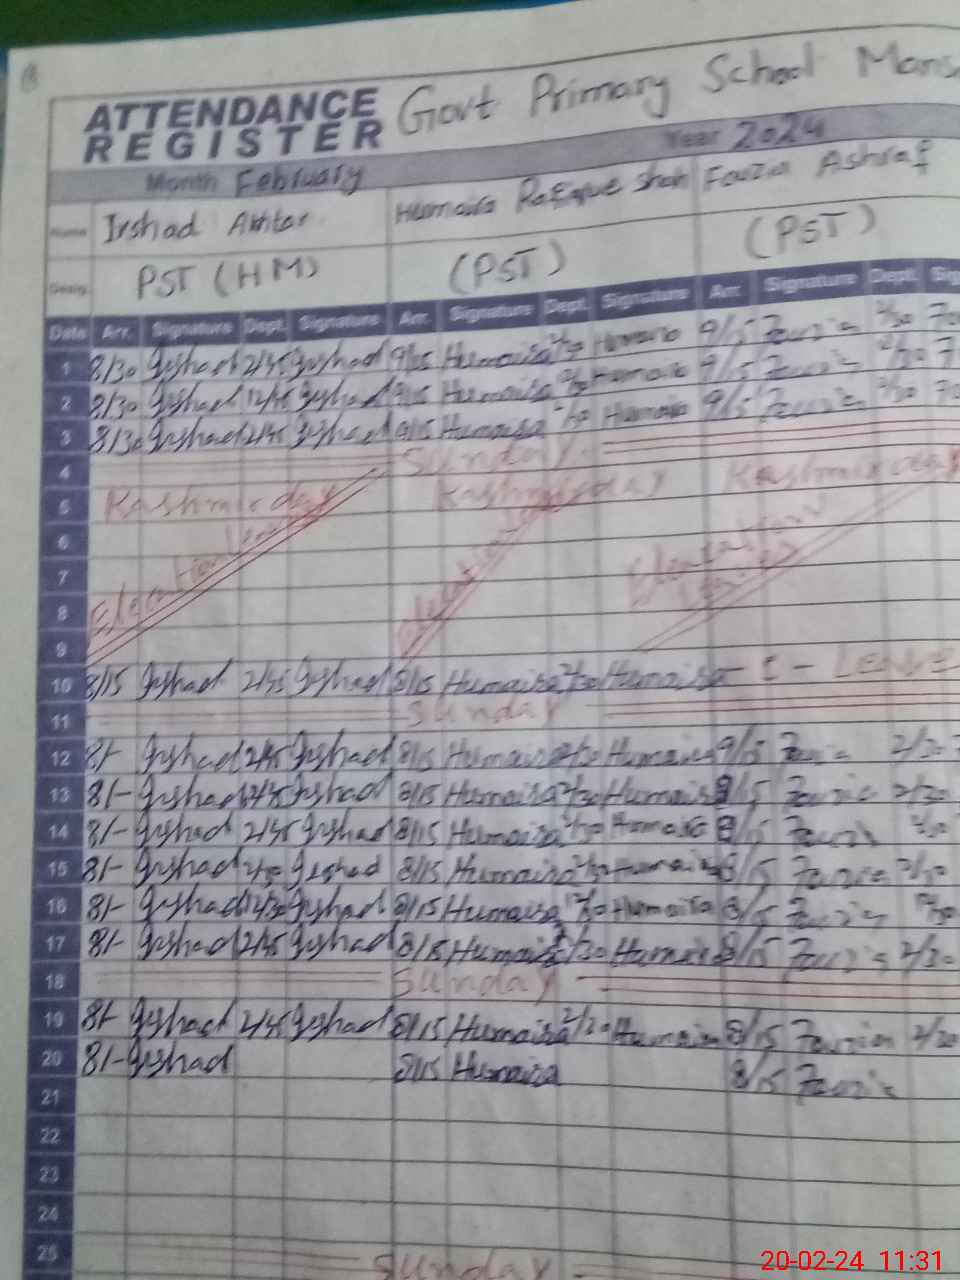 ATTENDANCE REGISTER Govt Primary School
Month February Year 2024
Name Irshad Akhtar Humaira Rafique Shah Fouzia Ashraf
Desig. PST (HM) (PST) (PST)
Date Arr. Signature Dept. Signature Arr. Signature Dept. Signature Arr. Signature Dept.
1 8/30 Irshad 2/45 Irshad 9/15 Humaira 2/30 Humaira 9/15 Fouzia 2/30
2 8/30 Irshad 12/45 Irshad 9/15 Humaira Humaira 9/15 Fouzia 12/30
3 8/30 Irshad 2/45 Irshad 9/15 Humaira 2/30 Humaira 9/15 Fouzia 2/30
4 Sunday
5 Kashmir day Kashmir day Kashmir day
6
7
8
9
10 8/15 Irshad 2/45 Irshad 8/15 Humaira 2/30 Humaira - C - Leave
11 Sunday
12 8/- Irshad 2/45 Irshad 8/15 Humaira 2/30 Humaira 9/15 Fouzia 2/30
13 8/- Irshad 2/45 Irshad 8/15 Humaira 2/30 Humaira 8/15 Fouzia 2/30
14 8/- Irshad 2/45 Irshad 8/15 Humaira 2/30 Humaira 8/15 Fouzia 2/30
15 8/- Irshad Irshad 8/15 Humaira 2/30 Humaira 8/15 Fouzia 2/30
16 8/- Irshad Irshad 8/15 Humaira 12/30 Humaira 8/15 Fouzia 12/30
17 8/- Irshad 2/45 Irshad 8/15 Humaira 2/30 Humaira 8/15 Fouzia 2/30
18 Sunday
19 8/- Irshad 2/45 Irshad 8/15 Humaira 2/30 Humaira 8/15 Fouzia 2/30
20 8/- Irshad 8/15 Humaira 8/15 Fouzia
21
22
23
24
25 Sunday
20-02-24 11:31